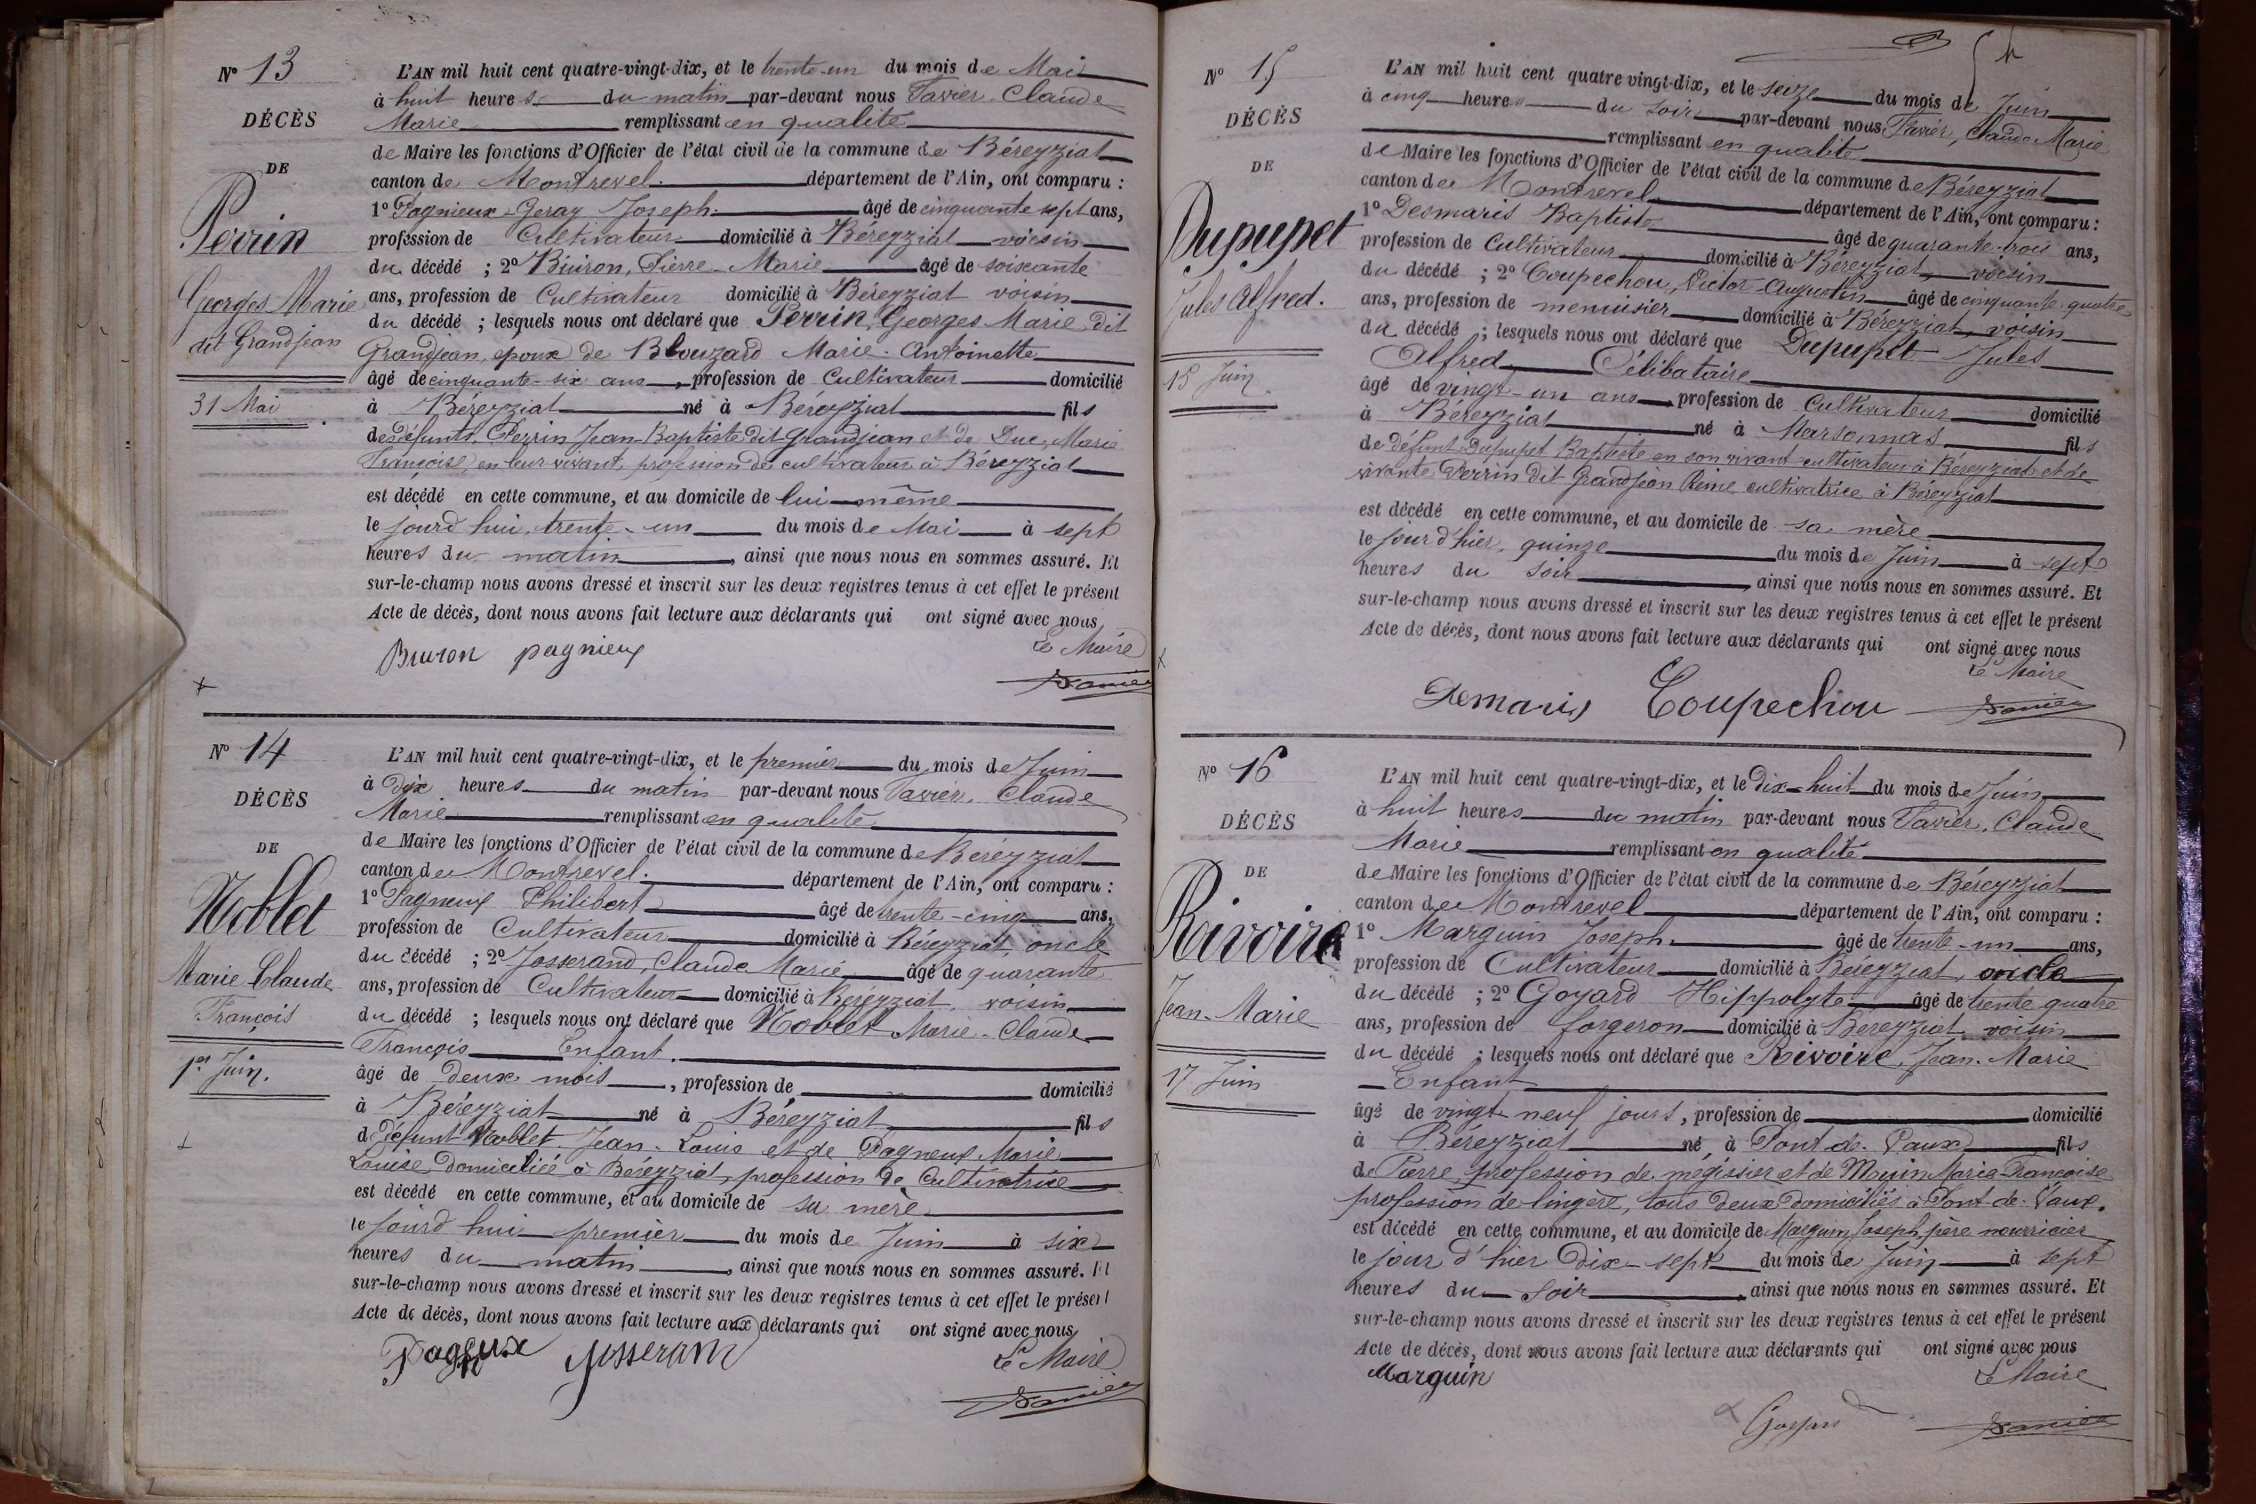 N° 13
DÉCÈS
DE
Perrin
Georges Marie
dit Grandjean
31 Mai
L'AN mil huit cent quatre-vingt-dix, et le trente-un du mois de Mai
à huit heures du matin par-devant nous Favier, Claude
Marie remplissant en qualité
de Maire les fonctions d'Officier de l'état civil de la commune de Béreyziat
canton de Montrevel département de l'Ain, ont comparu :
1° Pagnieux-Geray Joseph âgé de cinquante sept ans,
profession de Cultivateur domicilié à Béreyziat voisin
du décédé ; 2° Buiron, Pierre-Marie âgé de soixante
ans, profession de Cultivateur domicilié à Béreyziat voisin
du décédé ; lesquels nous ont déclaré que Perrin, Georges Marie, dit
Grandjean, époux de Blouzard Marie-Antoinette
âgé de cinquante-six ans, profession de Cultivateur domicilié
à Béreyziat né à Béreyziat fils
des défunts Perrin Jean-Baptiste dit Grandjean et de Duc, Marie
Françoise, en leur vivant, profession de cultivateurs à Béreyziat
est décédé en cette commune, et au domicile de lui-même
le jourd'hui, trente-un du mois de Mai à sept
heures du matin, ainsi que nous nous en sommes assuré. Et
sur-le-champ nous avons dressé et inscrit sur les deux registres tenus à cet effet le présent
Acte de décès, dont nous avons fait lecture aux déclarants qui ont signé avec nous
Le Maire
Buiron pagnieux Favier
N° 14
DÉCÈS
DE
Noblet
Marie Claude
François
1er Juin.
L'AN mil huit cent quatre-vingt-dix, et le premier du mois de Juin
à Dix heures du matin par-devant nous Favier, Claude
Marie remplissant en qualité
de Maire les fonctions d'Officier de l'état civil de la commune de Béreyziat
canton de Montrevel département de l'Ain, ont comparu :
1° Pagneux Philibert âgé de trente-cinq ans,
profession de Cultivateur domicilié à Béreyziat, oncle
du décédé ; 2° Josserand, Claude Marie âgé de quarante
ans, profession de Cultivateur domicilié à Béreyziat, voisin
du décédé ; lesquels nous ont déclaré que Noblet Marie-Claude
François Enfant.
âgé de Deux mois, profession de domicilié
à Béreyziat né à Béreyziat fils
de Défunt Noblet Jean-Louis et de Pagneux Marie
Louise, Domiciliée à Béreyziat, profession de Cultivatrice
est décédé en cette commune, et au domicile de sa mère
le jourd'hui premier du mois de Juin à six
heures du matin, ainsi que nous nous en sommes assuré. Et
sur-le-champ nous avons dressé et inscrit sur les deux registres tenus à cet effet le présent
Acte de décès, dont nous avons fait lecture aux déclarants qui ont signé avec nous
Le Maire
Josserand Favier
N° 15
DÉCÈS
DE
Dupupet
Jules Alfred.
15 Juin
L'AN mil huit cent quatre vingt-dix, et le seize du mois de Juin
à cinq heures du soir par-devant nous Favier, Claude Marie
remplissant en qualité
de Maire les fonctions d'Officier de l'état civil de la commune de Béreyziat
canton de Montrevel département de l'Ain, ont comparu :
1° Desmaris Baptiste âgé de quarante-trois ans,
profession de Cultivateur domicilié à Béreyziat, voisin
du décédé ; 2° Coupechou, Victor-Augustin âgé de cinquante-quatre
ans, profession de menuisier domicilié à Béreyziat, voisin
du décédé ; lesquels nous ont déclaré que Dupupet Jules
Alfred Célibataire
âgé de vingt-un ans, profession de Cultivateur domicilié
à Béreyziat né à Marsonnas fils
de défunt Dupupet Baptiste en son vivant cultivateur à Béreyziat et de
vivante Perrin dit Grandjean Reine cultivatrice à Béreyziat
est décédé en cette commune, et au domicile de sa mère
le jour d'hier, quinze du mois de Juin à sept
heures du soir, ainsi que nous nous en sommes assuré. Et
sur-le-champ nous avons dressé et inscrit sur les deux registres tenus à cet effet le présent
Acte de décès, dont nous avons fait lecture aux déclarants qui ont signé avec nous
Le Maire
Demaris Coupechou Favier
N° 16
DÉCÈS
DE
Rivoire
Jean-Marie
17 Juin
L'AN mil huit cent quatre-vingt-dix, et le Dix-huit du mois de Juin
à huit heures du matin par-devant nous Favier, Claude
Marie remplissant en qualité
de Maire les fonctions d'Officier de l'état civil de la commune de Béreyziat
canton de Montrevel département de l'Ain, ont comparu :
1° Marguin Joseph âgé de trente-un ans,
profession de Cultivateur domicilié à Béreyziat, oncle
du décédé ; 2° Goyard Hippolyte âgé de trente quatre
ans, profession de forgeron domicilié à Béreyziat voisin
du décédé ; lesquels nous ont déclaré que Rivoire, Jean-Marie
Enfant
âgé de vingt-neuf jours, profession de domicilié
à Béreyziat né à Pont-de-Vaux fils
de Pierre, profession de mégissier et de Moyin Marie-Françoise
profession de lingère, tous deux domiciliés à Pont-de-Vaux.
est décédé en cette commune, et au domicile de Marguin Joseph, père nourricier
le jour d'hier Dix-sept du mois de Juin à sept
heures du soir, ainsi que nous nous en sommes assuré. Et
sur-le-champ nous avons dressé et inscrit sur les deux registres tenus à cet effet le présent
Acte de décès, dont nous avons fait lecture aux déclarants qui ont signé avec nous
Marguin Le Maire
Goyard Favier